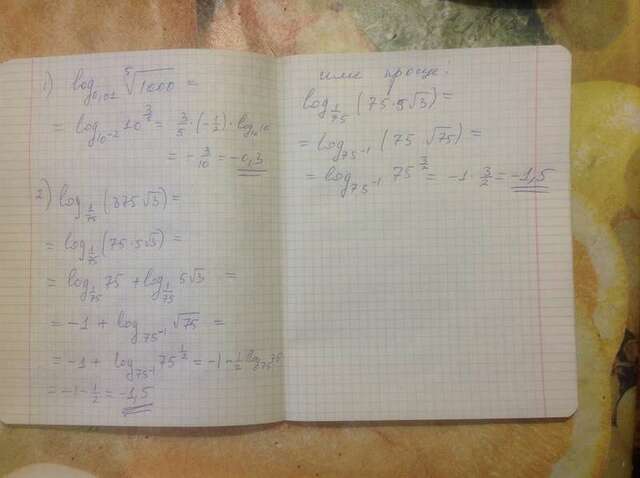 1) log₀,₀₁ ⁵√1000 =
= log₁₀₋₂ 10^(3/5) = 3/5 · (-1/2) · log₁₀10
= - 3/10 = -0,3
2) log_(1/75) (375√3) =
= log_(1/75) (75·5√3) =
= log_(1/75) 75 + log_(1/75) 5√3 =
= -1 + log_(75⁻¹) √75 =
= -1 + log_(75⁻¹) 75^(1/2) = -1 - 1/2 log₇₅75
= -1 - 1/2 = -1,5
или проще:
log_(1/75) (75·5√3) =
= log_(75⁻¹) (75·√75) =
= log_(75⁻¹) 75^(3/2) = -1 · 3/2 = -1,5